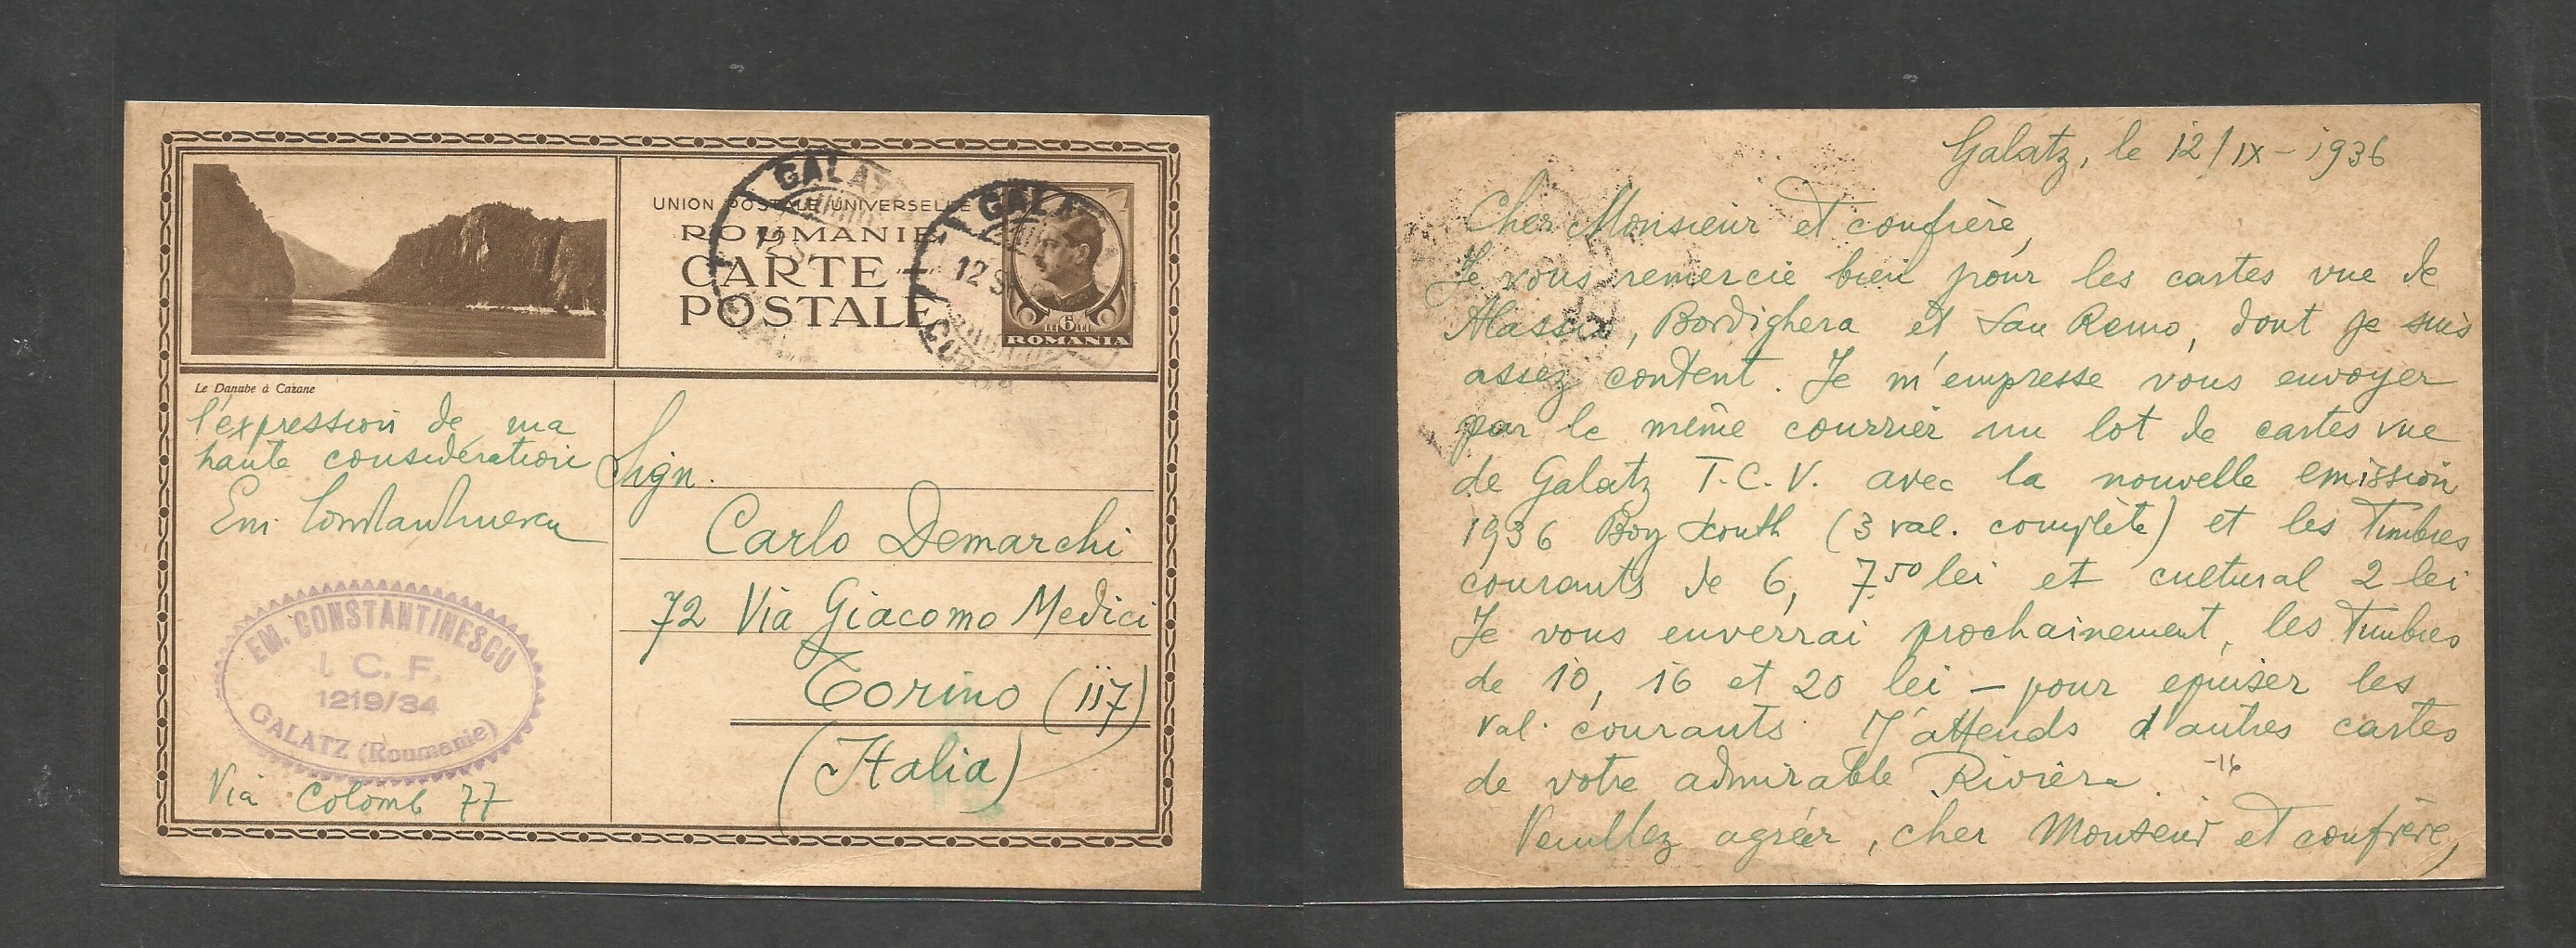 UNION POSTALE UNIVERSELLE
ROUMANIE
CARTE
POSTALE
GALATZ
12 S
GALA
LEI 6 LEI
ROMANIA
Le Danube à Cazane
l'expression de ma
haute considération
Em. Constantinescu
EM. CONSTANTINESCU
I. C. F.
1219/34
GALATZ (Roumanie)
Via Colomb 77
Sign.
Carlo Demarchi
72 Via Giacomo Medici
Torino (117)
(Italia)
Galatz, le 12/IX-1936
Cher Monsieur et confrère,
Je vous remercie bien pour les cartes vue de
Alassio, Bordighera et San Remo, dont je suis
assez content. Je m'empresse vous envoyer
par le même courrier un lot de cartes vue
de Galatz T.C.V. avec la nouvelle emission
1936 Boy Scouth (3 val. complète) et les Timbres
courants de 6, 7.50 lei et cultural 2 lei
Je vous enverrai prochainement, les Timbres
de 10, 16 et 20 lei - pour epuiser les
val. courants. J'attends d'autres cartes
de votre admirable Rivièra.
-16
Veuillez agréer, cher Monsieur et confrère,